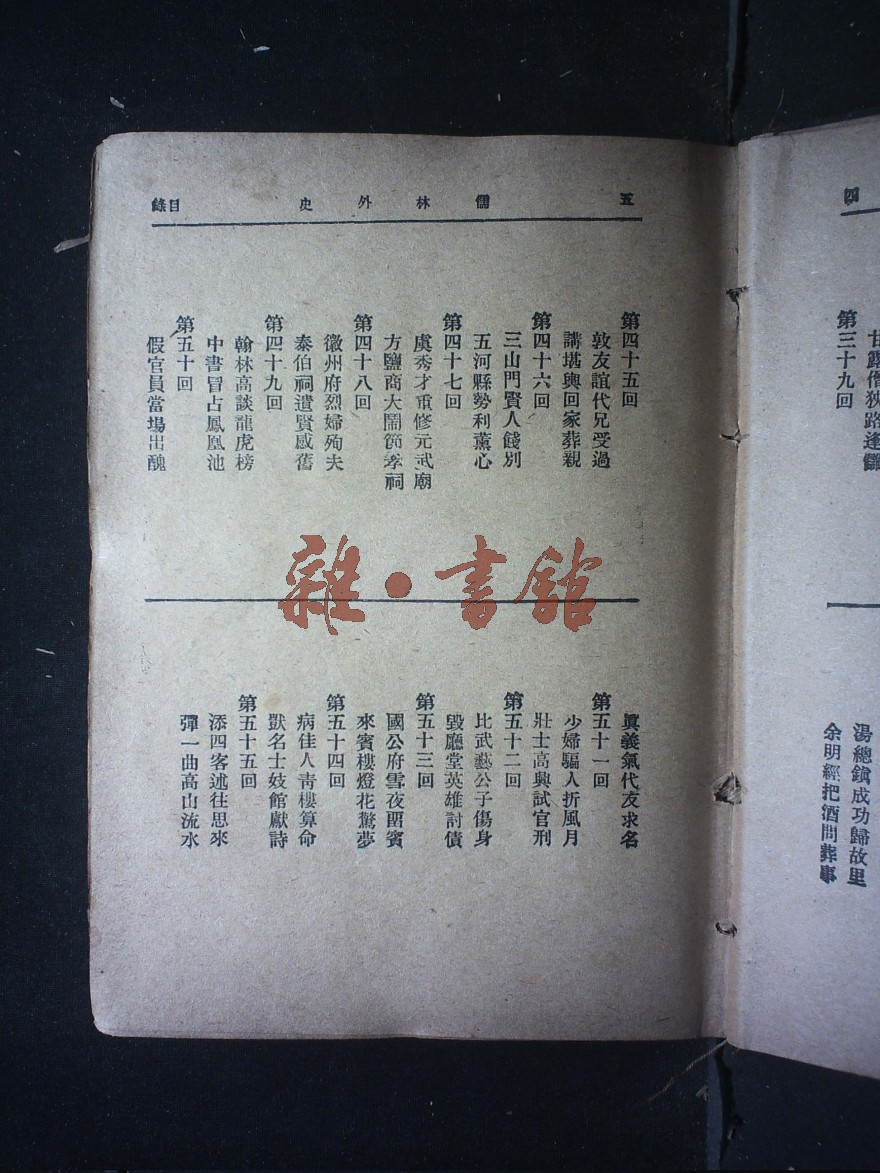 五 儒林外史 目錄
第四十五回
敦友誼代兄受過
講堪輿回家葬親
第四十六回
三山門賢人餞別
五河縣勢利薰心
第四十七回
虞秀才重修元武廟
方鹽商大鬧節孝祠
第四十八回
徽州府烈婦殉夫
泰伯祠遺賢感舊
第四十九回
翰林高談龍虎榜
中書冒占鳳凰池
第五十回
假官員當場出醜
眞義氣代友求名
第五十一回
少婦騙人折風月
壯士高興試官刑
第五十二回
比武藝公子傷身
毀廳堂英雄討債
第五十三回
國公府雪夜留賓
來賓樓燈花驚夢
第五十四回
病佳人靑樓算命
獃名士妓館獻詩
第五十五回
添四客述往思來
彈一曲高山流水
雜·書館
四
甘露僧狹路逢讎
第三十九回
湯總鎭成功歸故里
余明經把酒問葬事